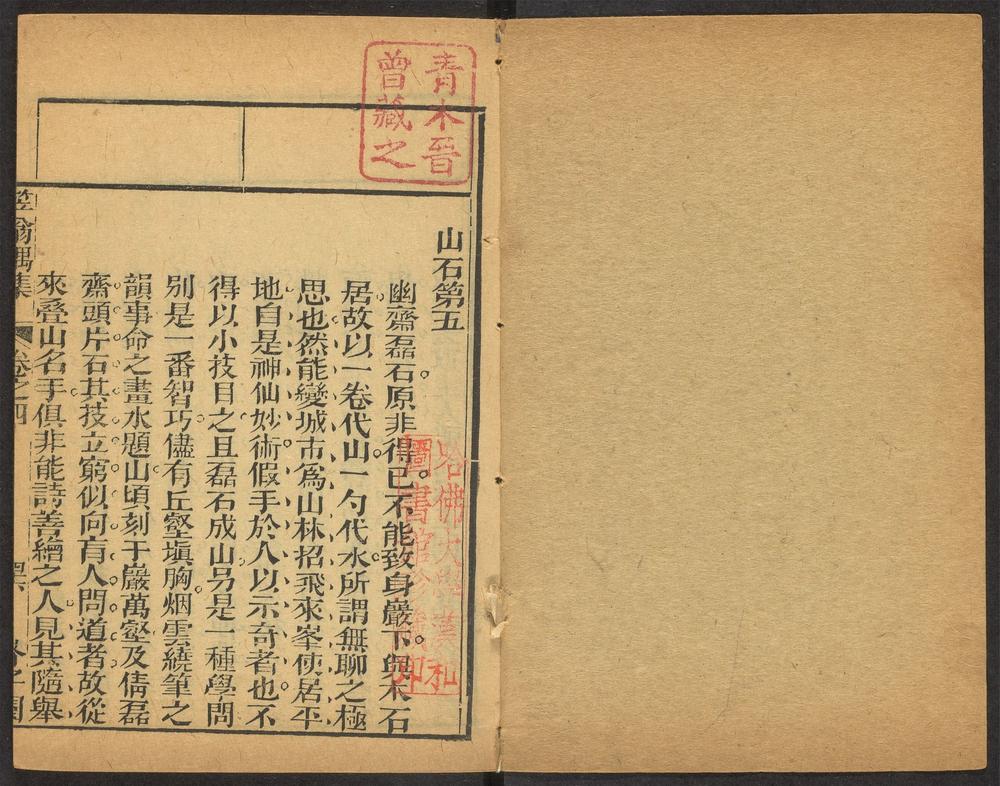 青木晉
曾藏之
山石第五
幽齋磊石原非得已不能致身巖下與木石
居故以一卷代山一勺代水所謂無聊之極
思也然能變城市為山林招飛來峯使居平
地自是神仙妙術假手於人以示奇者也不
得以小技目之且磊石成山另是一種學問
別是一番智巧儘有丘壑塡胸烟雲繞筆之
韻事命之畫水題山頃刻千巖萬壑及倩磊
齋頭片石其技立窮似向盲人問道者故從
來疊山名手俱非能詩善繪之人見其隨舉
笠翁偶集 卷之四
哈佛大學漢和
圖書館珍藏印